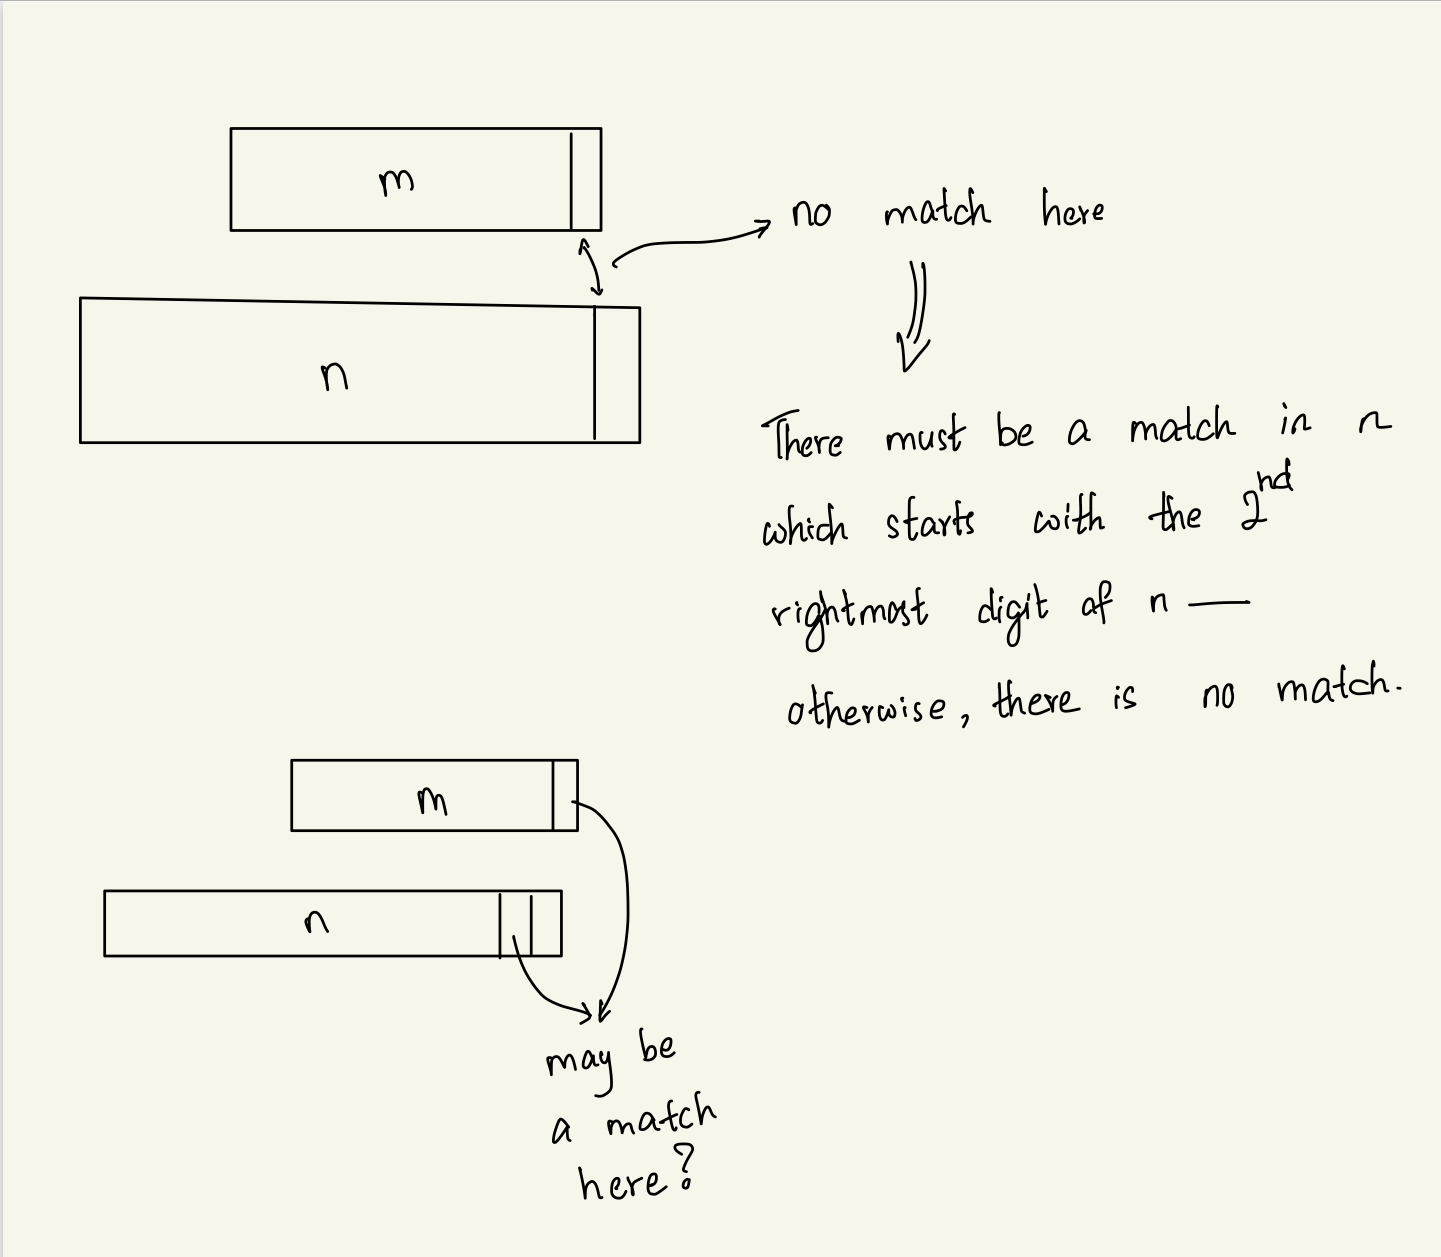 m
no match here
n
There must be a match in n
which starts with the 2nd
rightmost digit of n —
otherwise, there is no match.
m
n
may be
a match
here?